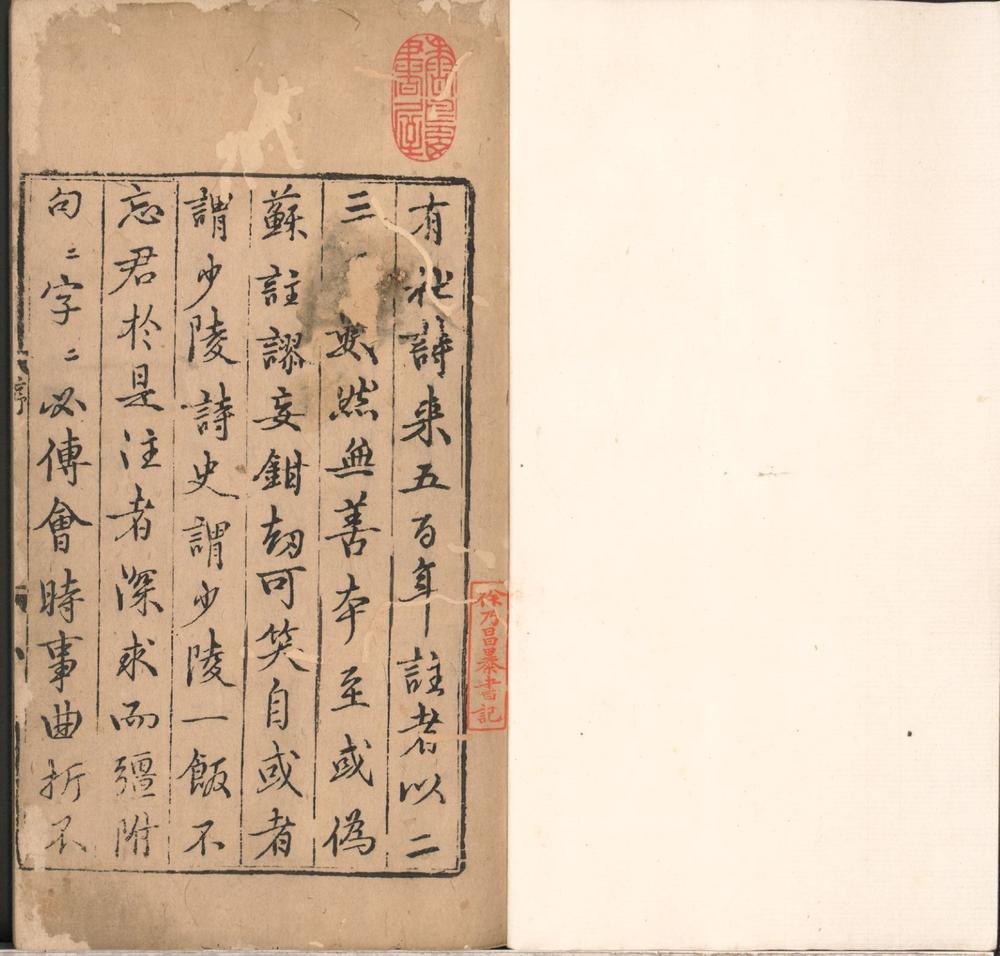 有杜詩来五百年註者以二
三數然無善本至或偽
蘇註謬妄鉗劫可笑自或者
謂少陵詩史謂少陵一飯不
忘君於是注者深求而彊附
句〻字〻必傅會時事曲折不
序
書屋
徐乃昌暴書記